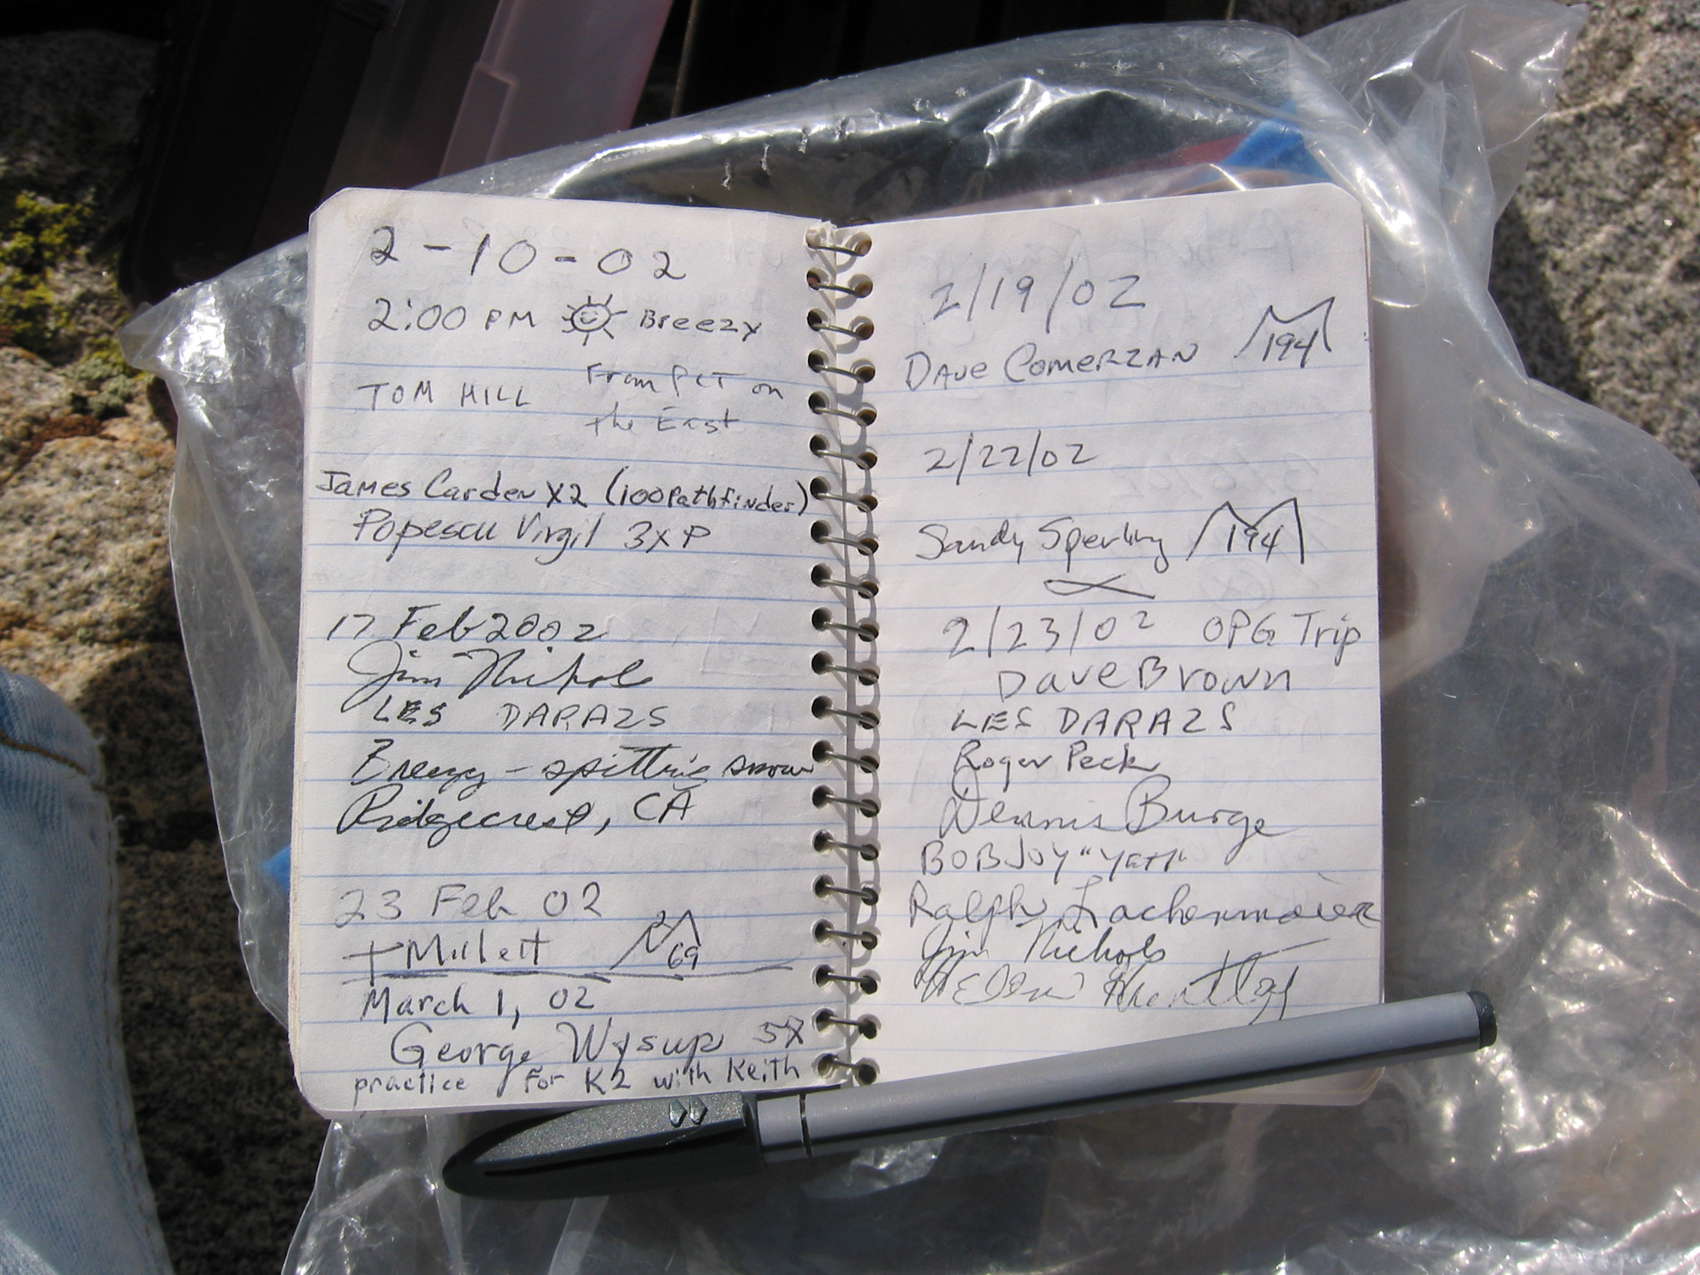 2-10-02
2:00 PM Breezy
TOM HILL From PCT on
the East
James Carden X2 (100 Pathfinder)
Popescu Virgil 3x P
17 Feb 2002
Jim Nichols
LES DARAZS
Breezy - spitting snow
Ridgecrest, CA
23 Feb 02
Millett 69
March 1, 02
George Wysup 5X
practice for K2 with Keith
2/19/02
DAVE COMERZAN 194
2/22/02
Sandy Sperling 194
2/23/02 OPG Trip
Dave Brown
LES DARAZS
Roger Peck
Dennis Burge
BOB JOY "YETI"
Ralph Lachenmaier
Jim Nichols